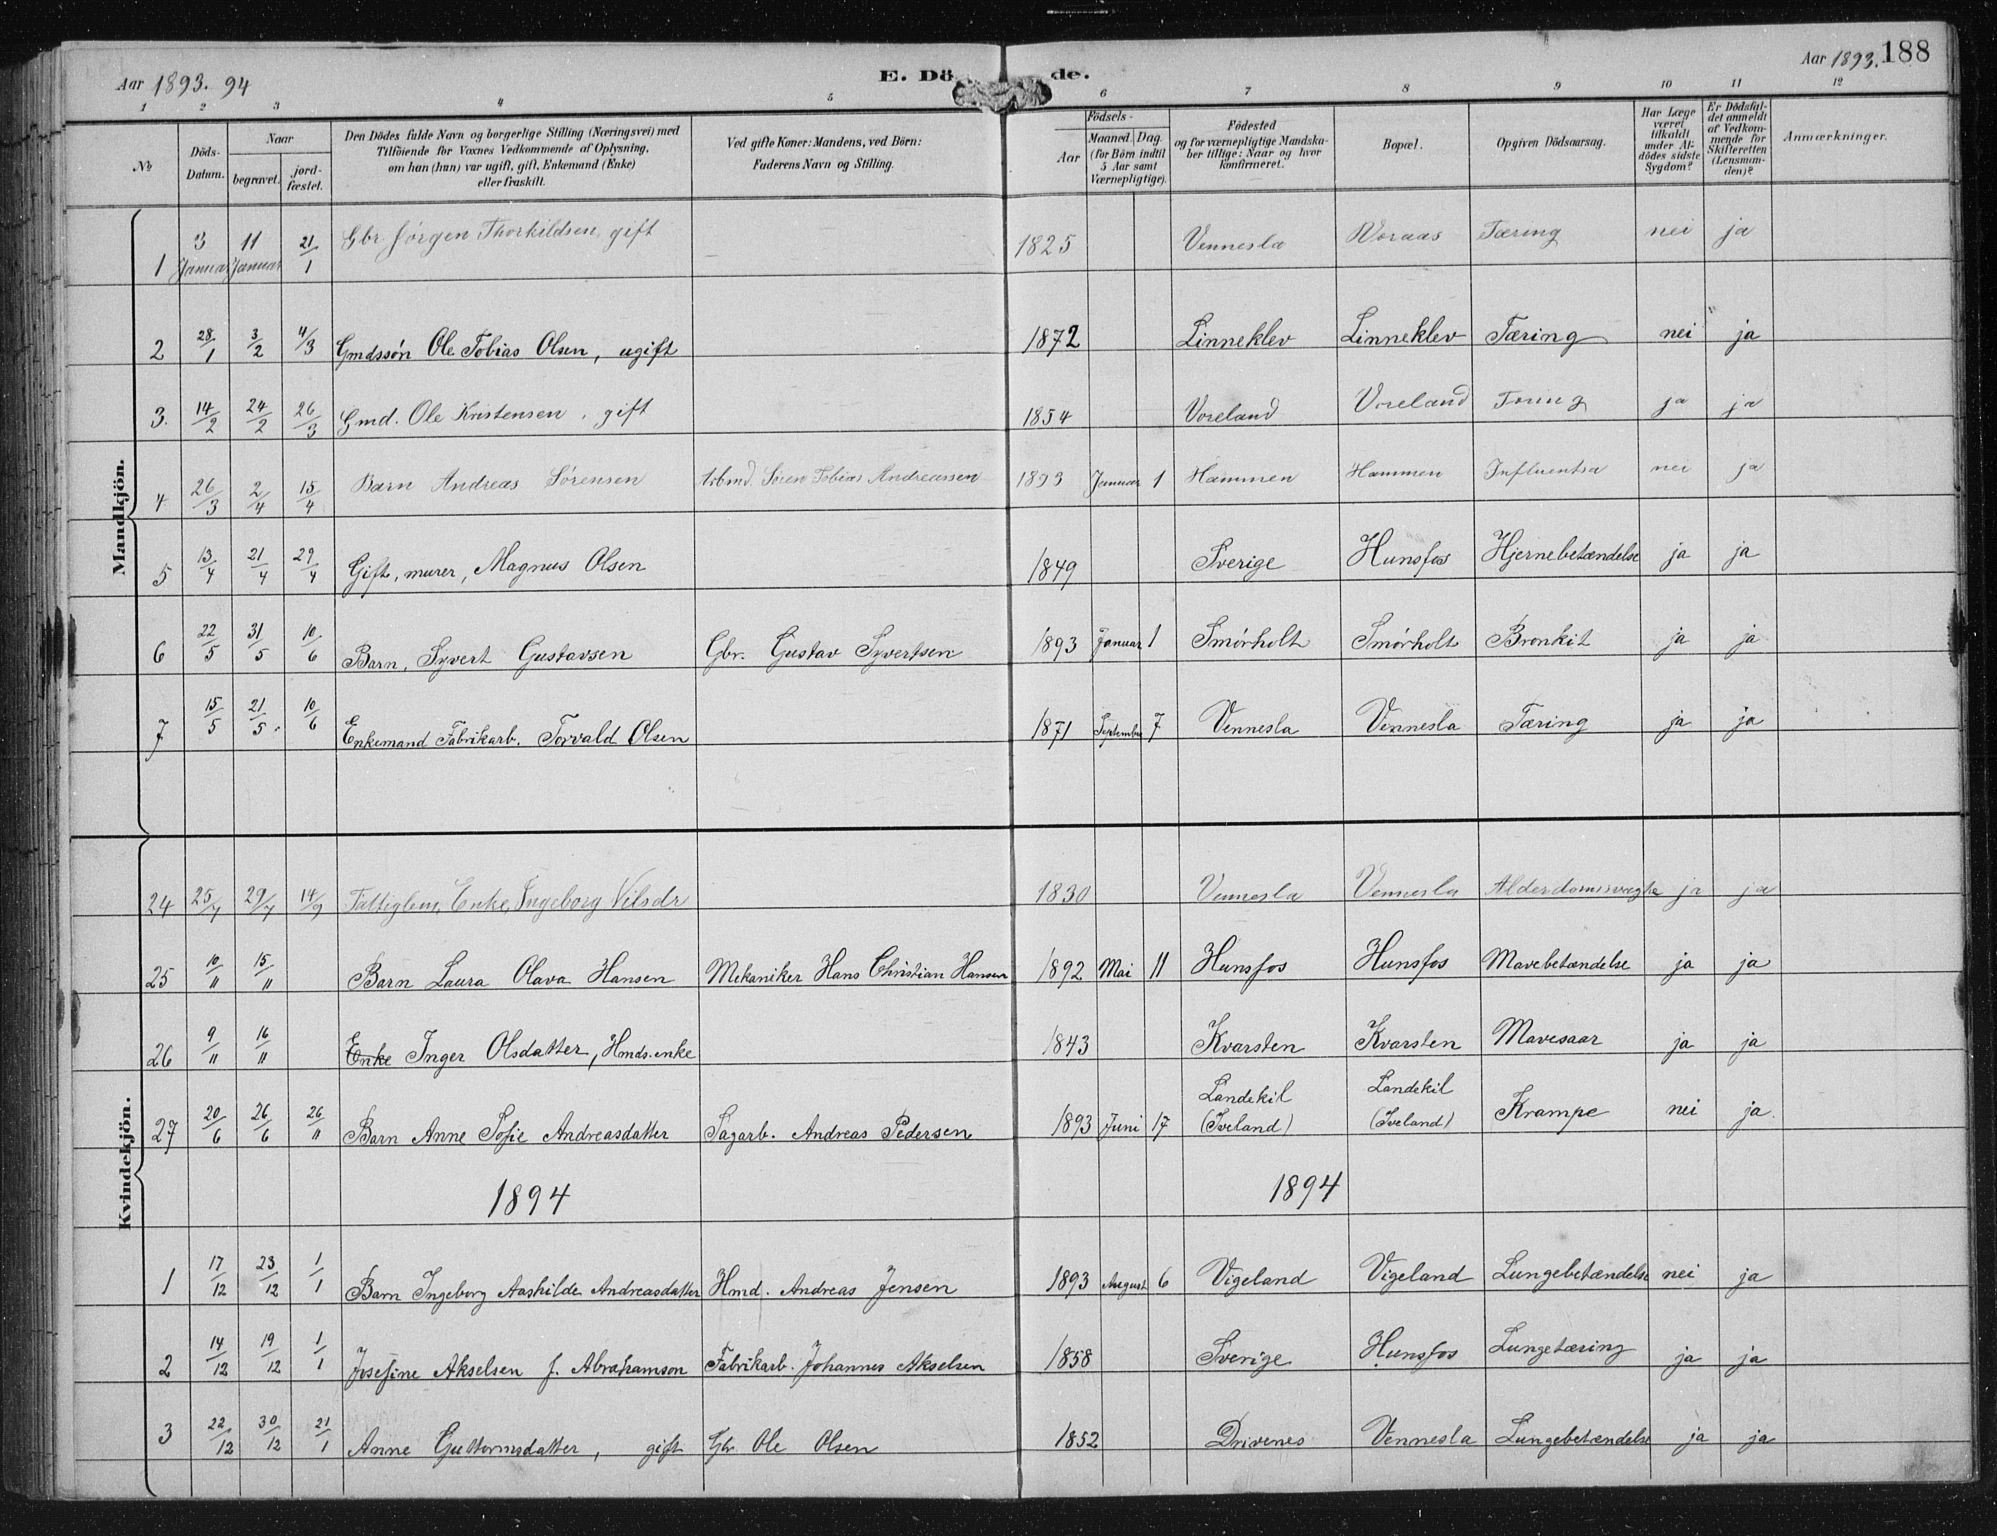 Aar 1893. 94
E. Dö de.
Aar 1893. 188
1 2 3 4 5 6 7 8 9 10 11 12
No
Döds-Datum.
Naar
begravet.
jord-fæstet.
Den Dödes fulde Navn og borgerlige Stilling (Næringsvei) med
Tilföiende for Voxnes Vedkommende af Oplysning,
om han (hun) var ugift, gift, Enkemand (Enke)
eller fraskilt.
Ved gifte Koner: Mandens, ved Börn:
Faderens Navn og Stilling.
Födsels-
Aar
Maaned. Dag.
(for Börn indtil
5 Aar samt
Værnepligtige).
Födested
og for værnepligtige Mandska-
ber tillige: Naar og hvor
konfirmeret.
Bopæl.
Opgiven Dödsaarsag.
Har Læge
været
tilkaldt
under Af-
dödes sidste
Sygdom?
Er Dödsfal-
det anmeldt
af Vedkom-
mende for
Skifteretten
(Lensman-
den)?
Anmærkninger.
Mandkjön.
1 3 Januar 11 Januar 21/1 Gbr Jörgen Thorkildsen, gift 1825 Vennesla Noraas Tæring nei ja
2 28/1 3/2 4/3 Gmdssön Ole Tobias Olsen, ugift 1872 Linneklev Linneklev Tæring nei ja
3. 14/2 24/2 26/3 Gmd. Ole Kristensen, gift 1854 Voreland Voreland Tæring ja ja
4 26/3 2/4 15/4 Barn Andreas Sörensen Arbmd. Sören Tobias Andreassen 1893 Januar 1 Hammen Hammen Influentsa nei ja
5 13/4 21/4 29/4 Gift, murer, Magnus Olsen 1849 Sverige Hunsfos Hjernebetændelse ja ja
6 22/5 31/5 10/6 Barn, Syvert Gustavsen Gbr. Gustav Syvertsen 1893 Januar 1 Smörholt Smörholt Bronkit ja ja
7 15/5 21/5. 10/6 Enkemand Fabrikarb. Torvald Olsen 1871 September 7 Vennesla Vennesla Tæring ja ja
Kvindekjön.
24 25/7 29/7 14/9 Fattiglem, Enke, Ingeborg Nilsdr 1830 Vennesla Vennesla Alderdomssvaghe ja ja
25 10/11 15/11 Barn Laura Olava Hansen Mekaniker Hans Christian Hansen 1892 Mai 11 Hunsfos Hunsfos Mavebetændelse ja ja
26 9/11 16/11 Enke Inger Olsdatter, Hmds. enke 1843 Kvarsten Kvarsten Mavesaar ja ja
27 20/6 26/6 26/11 Barn Anne Sofie Andreasdatter Sagarb. Andreas Pedersen 1893 Juni 17 Landekil (Iveland) Landekil (Iveland) Krampe nei ja
1894 1894
1 17/12 23/12 1/1 Barn Ingeborg Aashilde Andreasdatter Hmd. Andreas Jensen 1893 August 6 Vigeland Vigeland Lungebetændelse nei ja
2 14/12 19/12 1/1 Josefine Akselsen f. Abrahamson Fabrikarb. Johannes Akselsen 1858 Sverige Hunsfos Lungetæring ja ja
3 22/12 30/12 21/1 Anne Guttormsdatter, gift Gbr. Ole Olsen 1852 Drivenes Vennesla Lungebetændelse ja ja